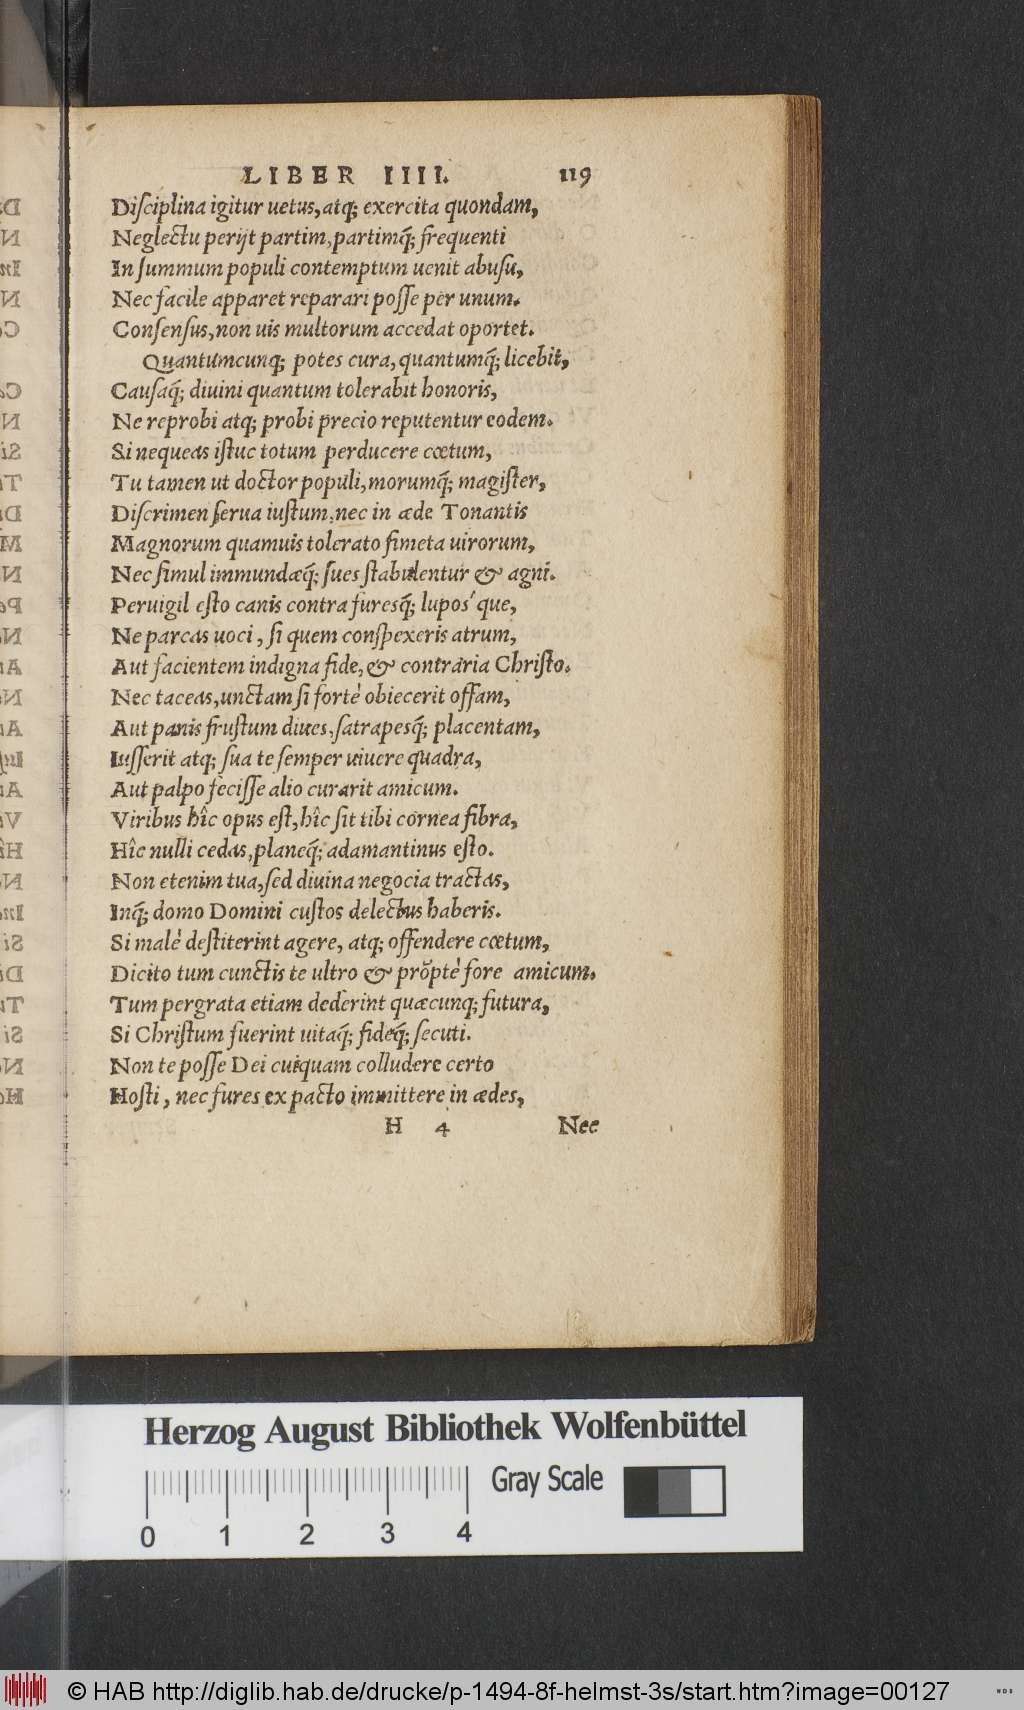 LIBER IIII. 119
Disciplina igitur uetus, atq; exercita quondam,
Neglectu perijt partim, partimq́; frequenti
In summum populi contemptum uenit abusu,
Nec facile apparet reparari posse per unum.
Consensus, non uis multorum accedat oportet.
Quantumcunq; potes cura, quantumq́; licebit,
Causaq́; diuini quantum tolerabit honoris,
Ne reprobi atq; probi precio reputentur eodem.
Si nequeas istuc totum perducere cœtum,
Tu tamen ut doctor populi, morumq́; magister,
Discrimen serua iustum, nec in æde Tonantis
Magnorum quamuis tolerato fimeta uirorum,
Nec simul immundæq́; sues stabulentur & agni.
Peruigil esto canis contra furesq́; lupos´que,
Ne parcas uoci, si quem conspexeris atrum,
Aut facientem indigna fide, & contraria Christo.
Nec taceas, unctam si fortè obiecerit offam,
Aut panis frustum diues, satrapesq́; placentam,
Iusserit atq; sua te semper uiuere quadra,
Aut palpo fecisse alio curarit amicum.
Viribus hîc opus est, hîc sit tibi cornea fibra,
Hîc nulli cedas, planeq́; adamantinus esto.
Non etenim tua, sed diuina negocia tractas,
Inq́; domo Domini custos delectus haberis.
Si malè destiterint agere, atq; offendere cœtum,
Dicito tum cunctis te ultro & prõptè fore amicum.
Tum pergrata etiam dederint quæcunq; futura,
Si Christum fuerint uitaq́; fideq́; secuti.
Non te posse Dei cuiquam colludere certo
Hosti, nec fures ex pacto immittere in ædes,
H 4 Nec
Herzog August Bibliothek Wolfenbüttel
Gray Scale
0 1 2 3 4
© HAB http://diglib.hab.de/drucke/p-1494-8f-helmst-3s/start.htm?image=00127